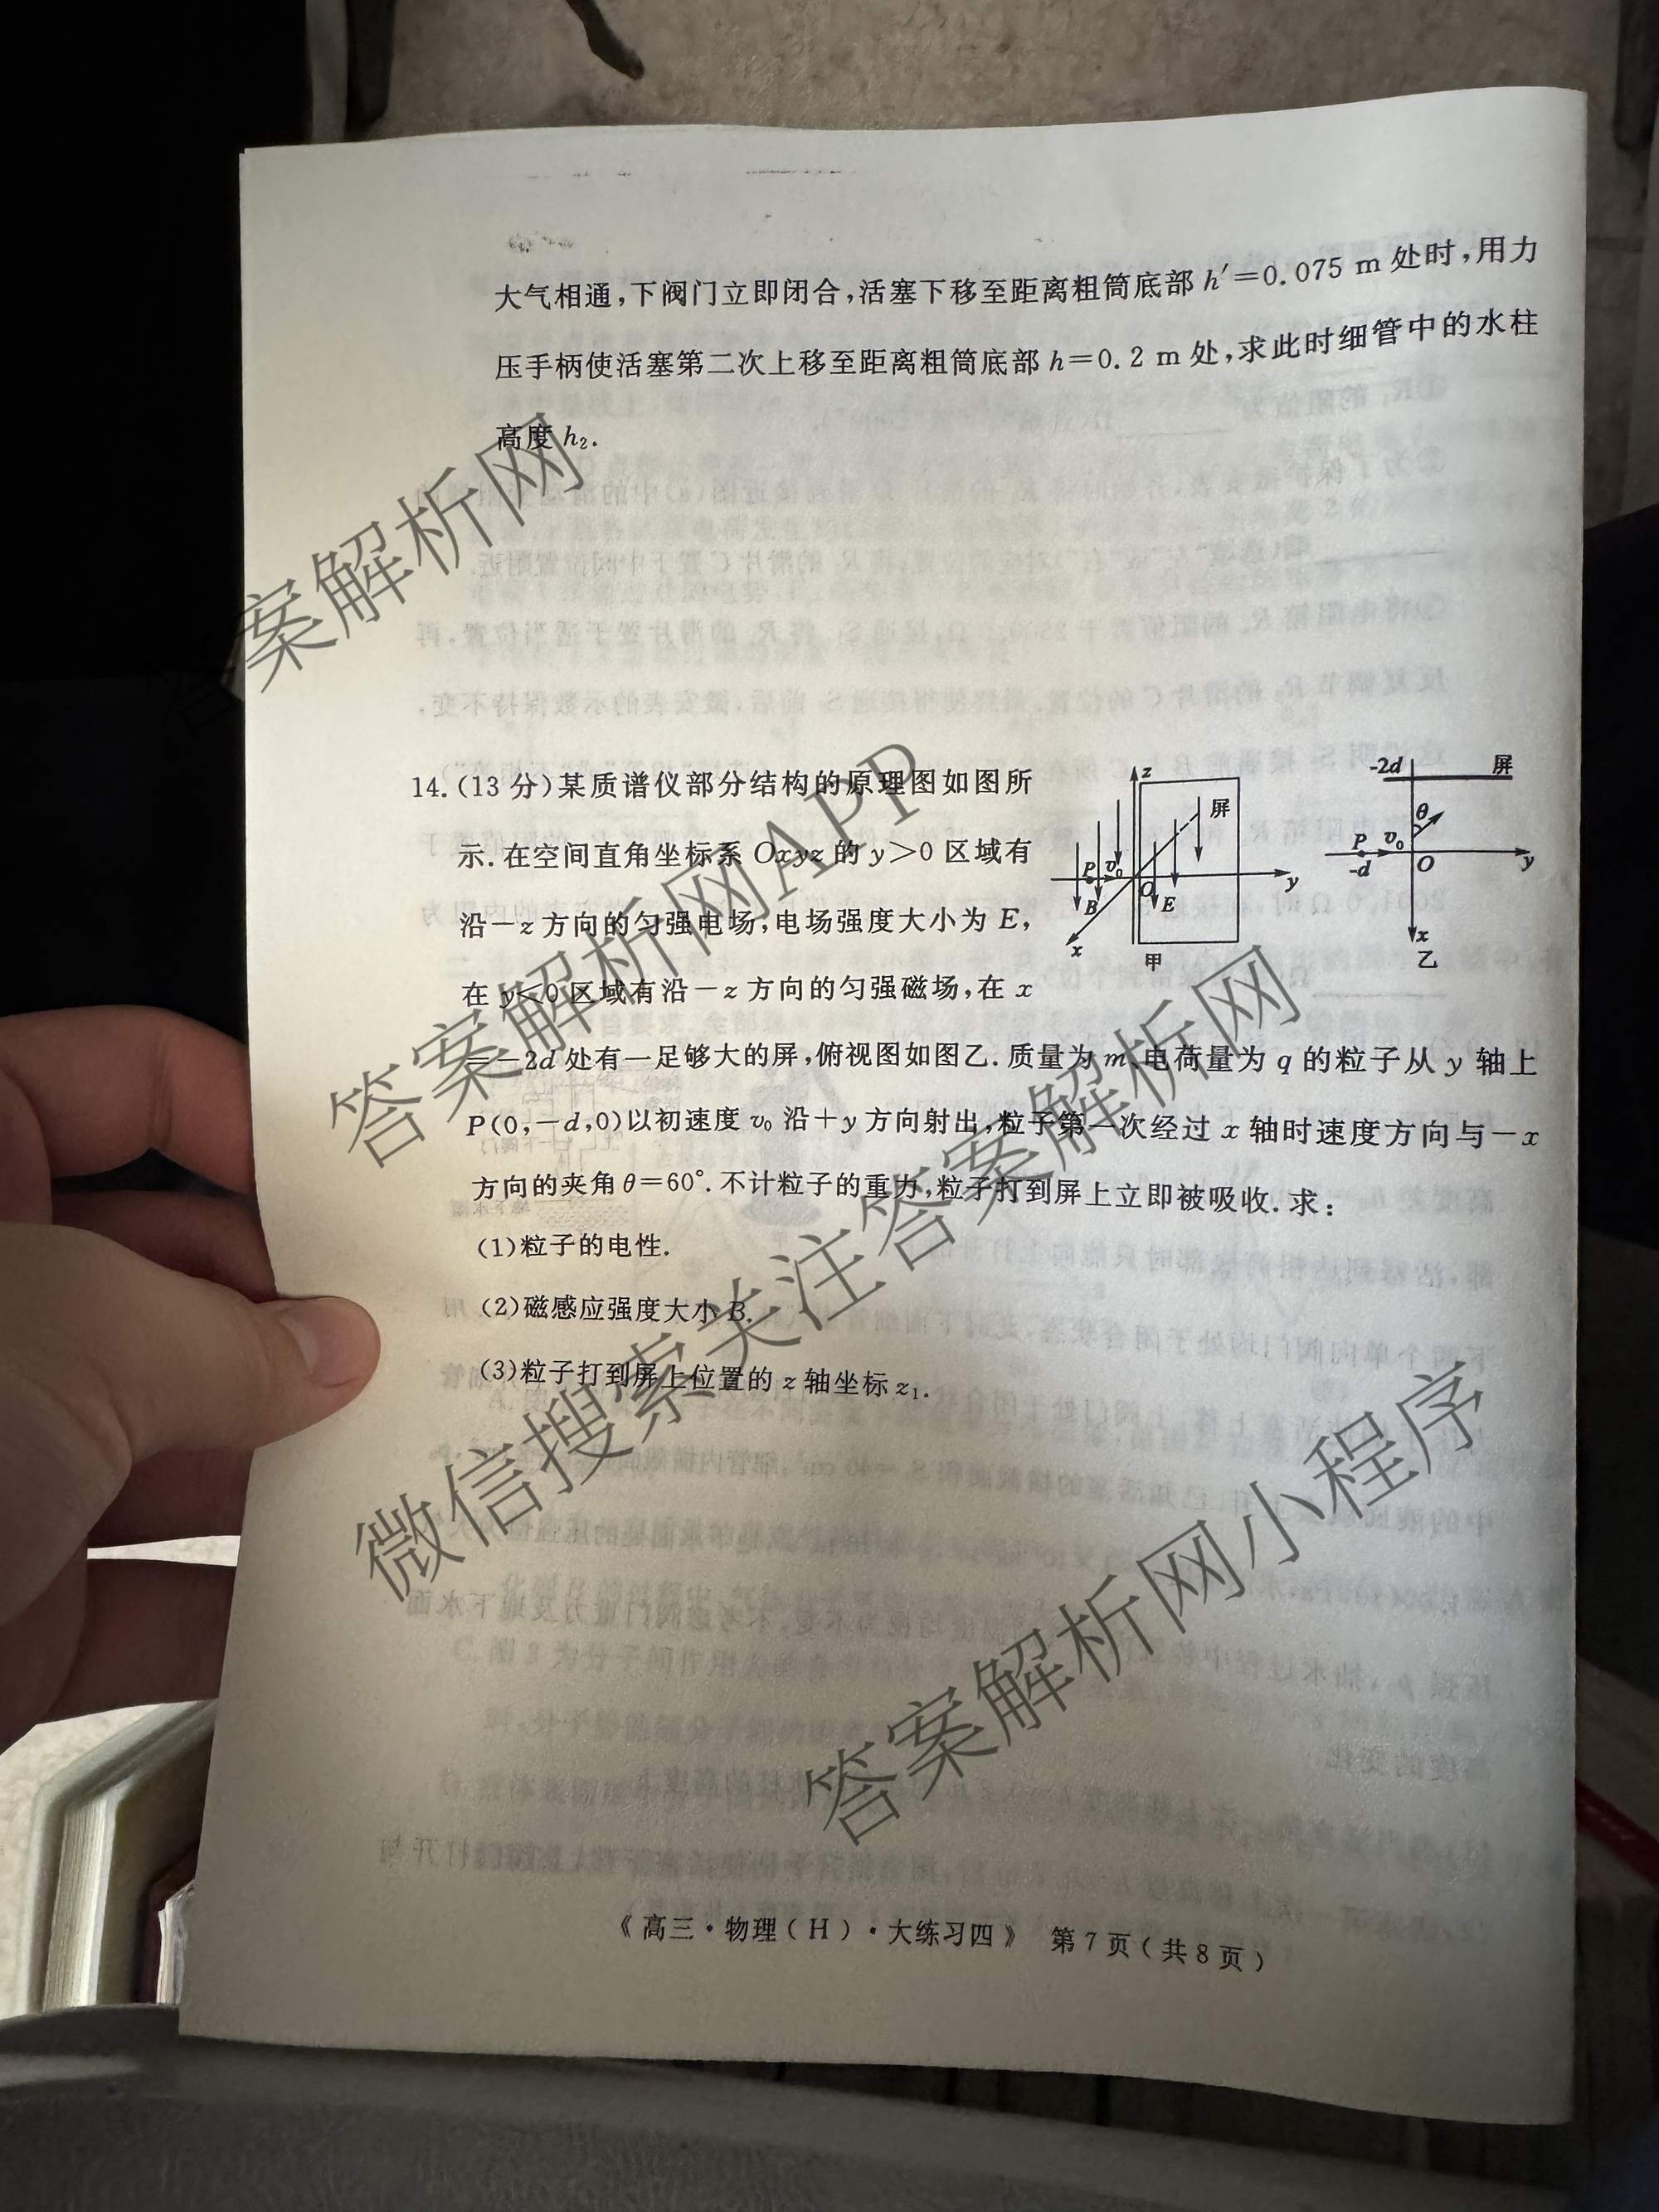 大气相通,下阀门立即闭合,活塞下移至距离粗筒底部 h′=0.075 m 处时,用力
压手柄使活塞第二次上移至距离粗筒底部 h=0.2 m 处,求此时细管中的水柱
高度 h₂.
14.(13 分)某质谱仪部分结构的原理图如图所
示.在空间直角坐标系 Oxyz 的 y>0 区域有
沿-z 方向的匀强电场,电场强度大小为 E,
在 y<0 区域有沿-z 方向的匀强磁场,在 x
=-2d 处有一足够大的屏,俯视图如图乙.质量为 m、电荷量为 q 的粒子从 y 轴上
P(0,-d,0)以初速度 v₀ 沿+y 方向射出,粒子第一次经过 x 轴时速度方向与-x
方向的夹角 θ=60°.不计粒子的重力,粒子打到屏上立即被吸收.求:
(1)粒子的电性.
(2)磁感应强度大小 B.
(3)粒子打到屏上位置的 z 轴坐标 z₁.
z
屏
P
v₀
O
y
B
E
x
甲
-2d
屏
θ
P
v₀
-d
O
y
x
乙
《高三·物理(H)·大练习四》 第7页(共8页)
答案解析网
答案解析网APP
微信搜索关注答案解析网
答案解析网小程序